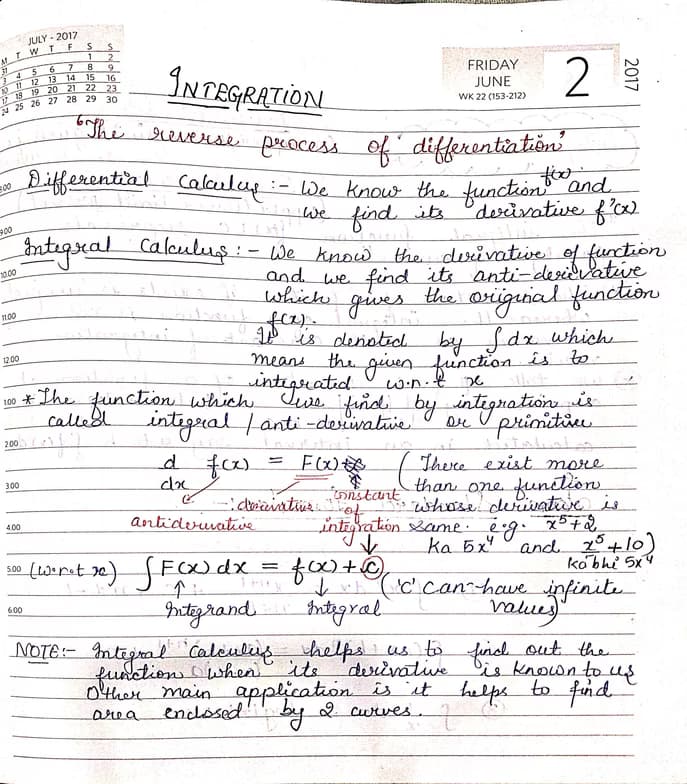 JULY - 2017
M T W T F S S
31 1 2
3 4 5 6 7 8 9
10 11 12 13 14 15 16
17 18 19 20 21 22 23
24 25 26 27 28 29 30
FRIDAY
JUNE
WK 22 (153-212)
2
2017
INTEGRATION
"The reverse process of differentiation"
8.00 Differential Calculus :- We know the function f(x) and
we find its derivative f'(x)
9.00
Integral Calculus :- We know the derivative of function
10.00 and we find its anti-derivative
which gives the original function
11.00 f(x).
It is denoted by ∫dx which
12.00 means the given function is to
integrated w.r.t x
1.00 * The function which we find by integration is
called integral / anti-derivative or primitive
2.00
d/dx f(x) = F(x) (There exist more
3.00 than one function
antiderivative derivative constant of integration
whose derivative is
4.00 same. e.g. x⁵+2
ka 5x⁴ and x⁵+10)
ka bhi 5x⁴
5.00 (w.r.t x) ∫F(x) dx = f(x) + C
('C' can have infinite
values)
6.00 Integrand Integral
NOTE:- Integral Calculus helps us to find out the
function when its derivative is known to us
Other main application is it helps to find
area enclosed by 2 curves.